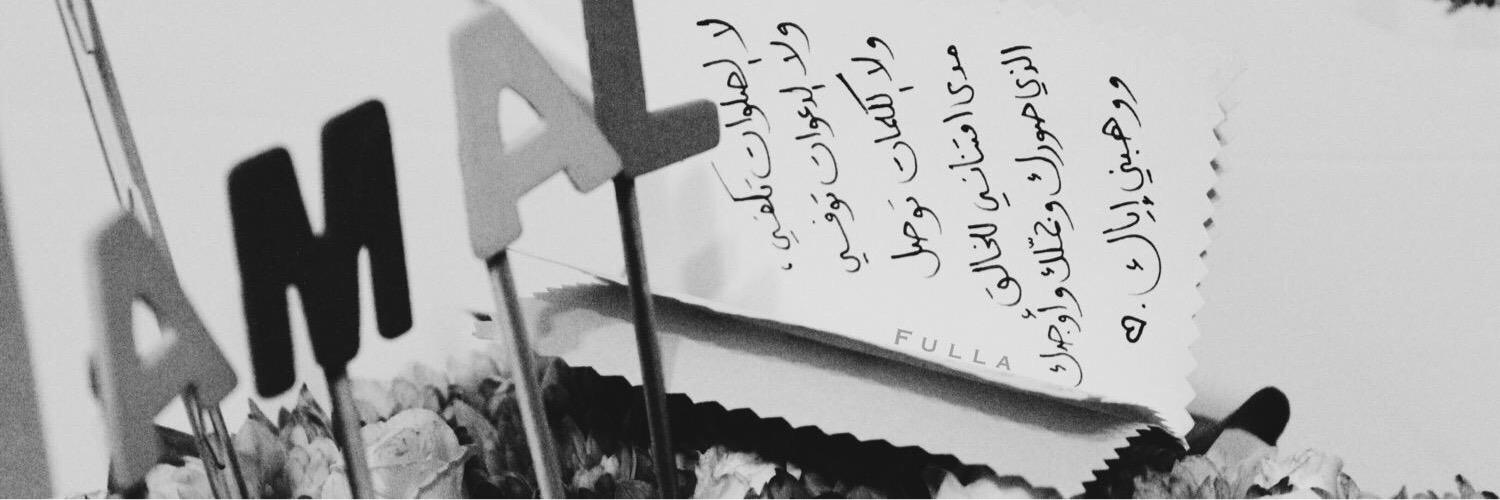 AMAL
لا الصلوات تكفي،
ولا الدعوات توفي
ولا الكلمات توصل
مدى امتناني للخالق
الذي صورك وجمّلك وأوجدك
ووهبني إياك . ♡
FULLA